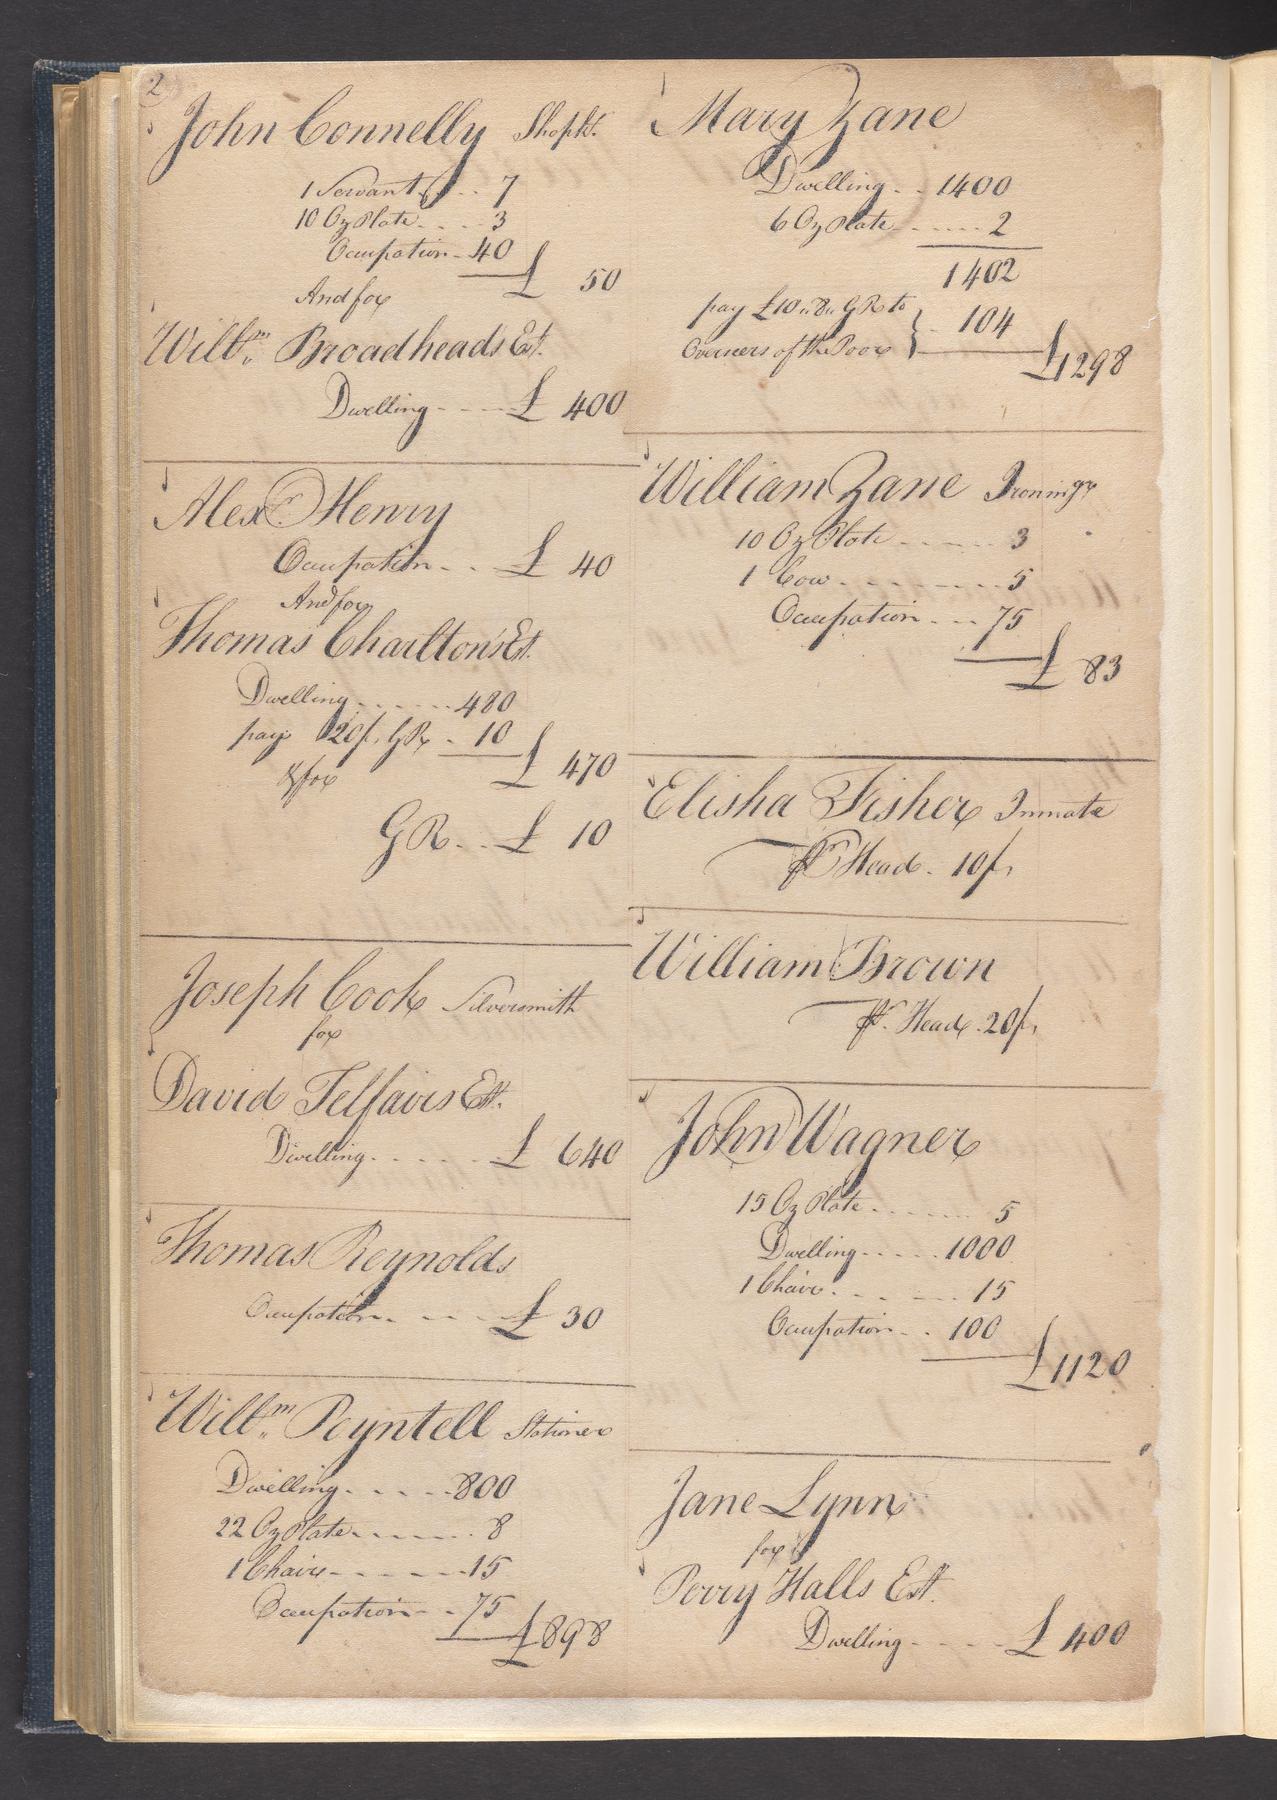 2
John Connelly Shopkr.
1 Servant 7
10 Oz Plate 3
Occupation 40
£ 50
And for
Willm. Broadheads Est.
Dwelling £ 400
Alexr. Henry
Occupation £ 40
And for
Thomas Charlton's Est.
Dwelling 480
pays 20/. GR 10
£ 470
& for
GR £ 10
Joseph Cook Silversmith
for
David Telfairs Est.
Dwelling £ 640
Thomas Reynolds
Occupation £ 30
Willm. Poyntell Stationer
Dwelling 800
22 Oz Plate 8
1 Chair 15
Occupation 75
£ 898
Mary Zane
Dwelling 1400
6 Oz Plate 2
1402
pay £10 " 8 " GR to
Overseers of the Poor } 104
£1298
William Zane Ironmgr
10 Oz Plate 3
1 Cow 5
Occupation 75
£ 83
Elisha Fisher Inmate
Pr. Head. 10/.
William Brown
Pr. Head. 20/.
John Wagner
15 Oz Plate 5
Dwelling 1000
1 Chair 15
Occupation 100
£1120
Jane Lynn
for
Perry Halls Est.
Dwelling £ 400